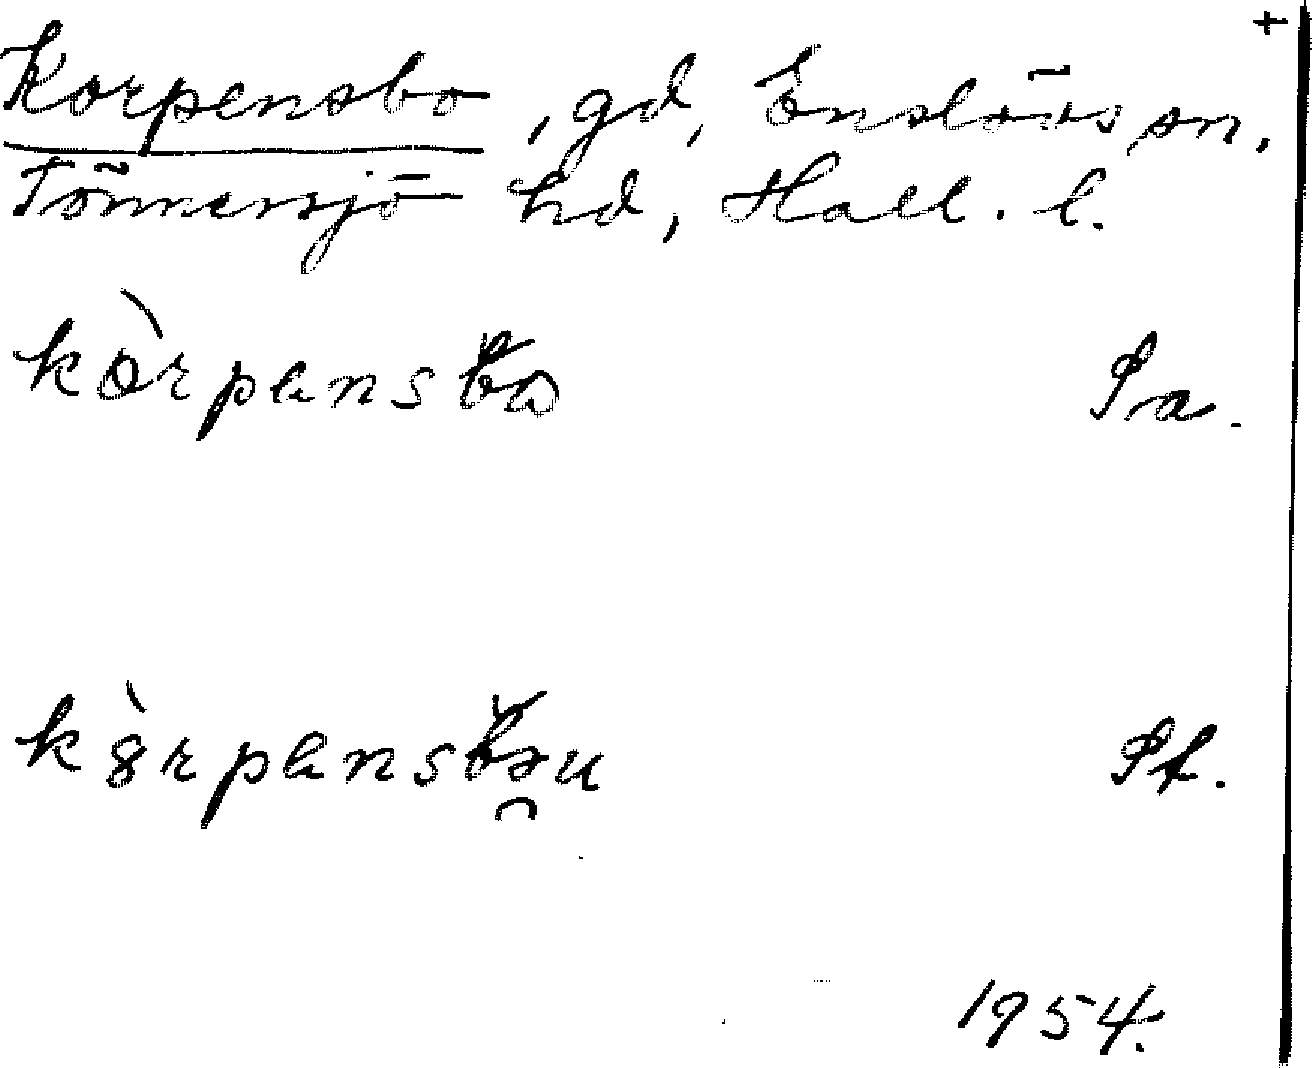 +
Korpensbo, gd, Enslövs sn,
Tönnersjö hd, Hall. l.
kòrpensbo Pa.
kòrpensbəu Pf.
1954.